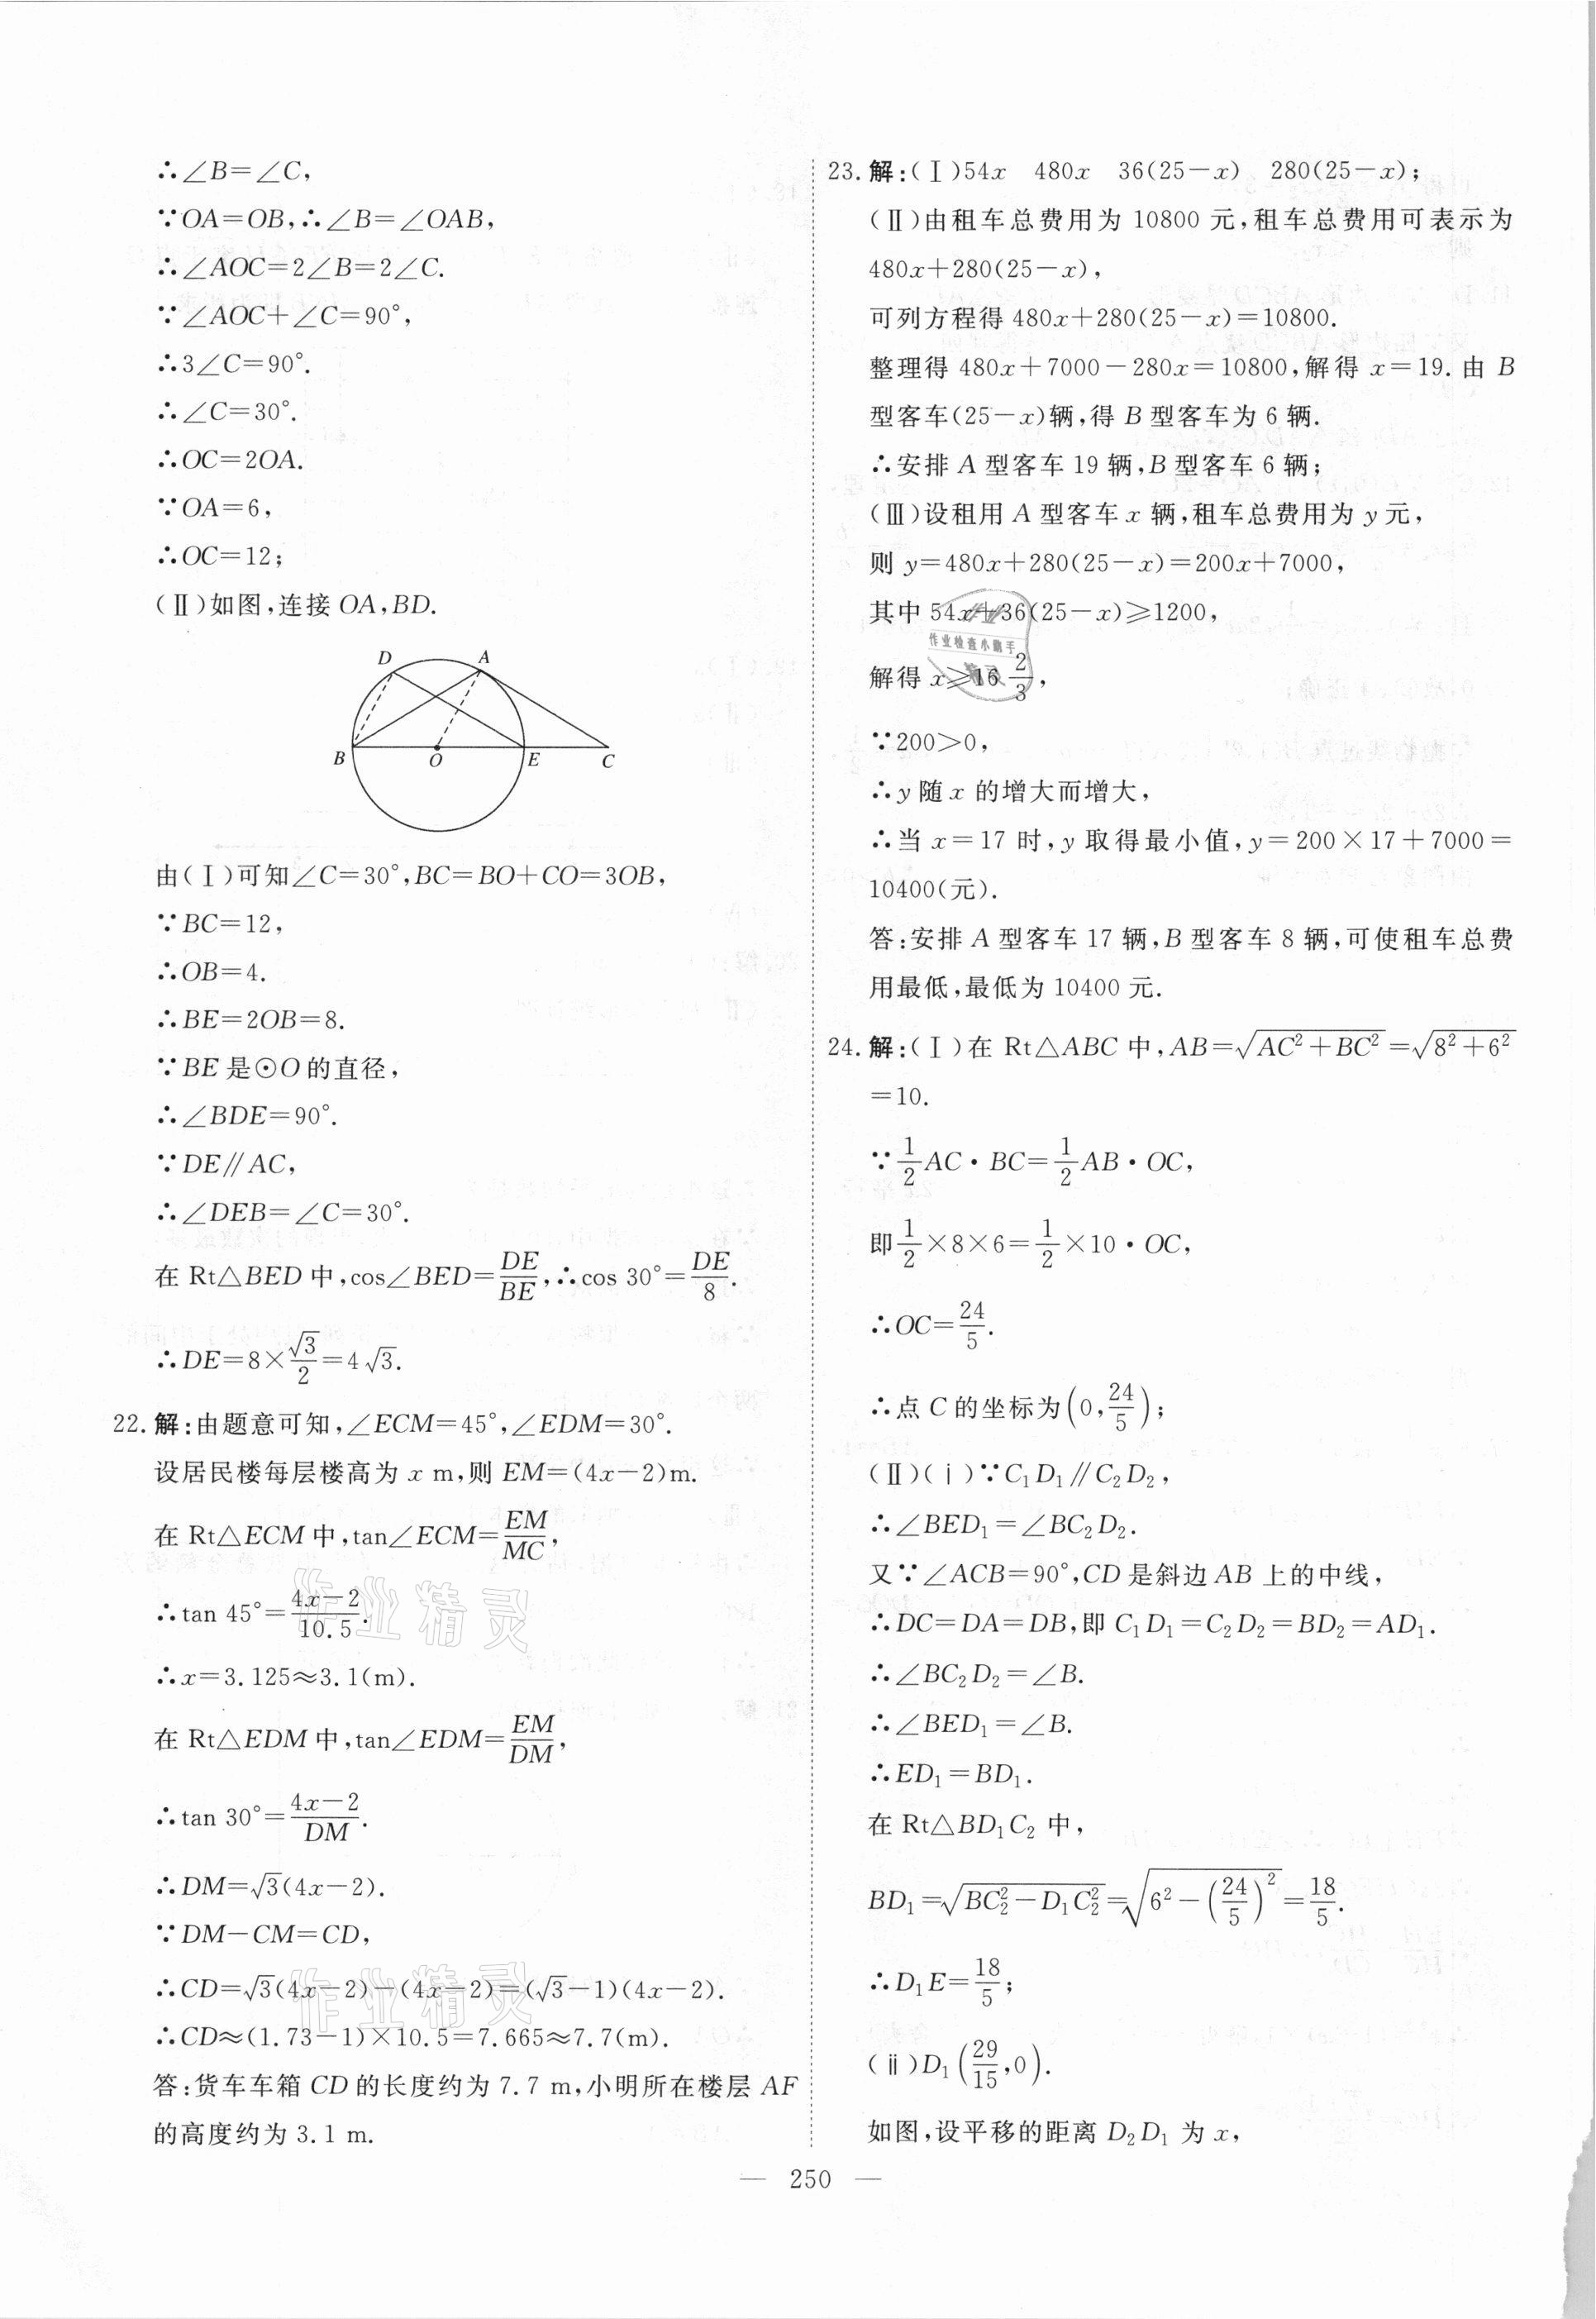 ∴∠B=∠C,
∵OA=OB,∴∠B=∠OAB,
∴∠AOC=2∠B=2∠C.
∵∠AOC+∠C=90°,
∴3∠C=90°.
∴∠C=30°.
∴OC=2OA.
∵OA=6,
∴OC=12;
(Ⅱ)如图,连接 OA,BD.
D A
B O E C
由(Ⅰ)可知∠C=30°,BC=BO+CO=3OB,
∵BC=12,
∴OB=4.
∴BE=2OB=8.
∵BE 是⊙O 的直径,
∴∠BDE=90°.
∵DE∥AC,
∴∠DEB=∠C=30°.
在 Rt△BED 中,cos∠BED=DE/BE,∴cos 30°=DE/8.
∴DE=8×√3/2=4√3.
22. 解:由题意可知,∠ECM=45°,∠EDM=30°.
设居民楼每层楼高为 x m,则 EM=(4x-2)m.
在 Rt△ECM 中,tan∠ECM=EM/MC,
∴tan 45°=(4x-2)/10.5.
∴x=3.125≈3.1(m).
在 Rt△EDM 中,tan∠EDM=EM/DM,
∴tan 30°=(4x-2)/DM.
∴DM=√3(4x-2).
∵DM-CM=CD,
∴CD=√3(4x-2)-(4x-2)=(√3-1)(4x-2).
∴CD≈(1.73-1)×10.5=7.665≈7.7(m).
答:货车车箱 CD 的长度约为 7.7 m,小明所在楼层 AF
的高度约为 3.1 m.
23. 解:(Ⅰ)54x 480x 36(25-x) 280(25-x);
(Ⅱ)由租车总费用为 10800 元,租车总费用可表示为
480x+280(25-x),
可列方程得 480x+280(25-x)=10800.
整理得 480x+7000-280x=10800,解得 x=19. 由 B
型客车(25-x)辆,得 B 型客车为 6 辆.
∴安排 A 型客车 19 辆,B 型客车 6 辆;
(Ⅲ)设租用 A 型客车 x 辆,租车总费用为 y 元,
则 y=480x+280(25-x)=200x+7000,
其中 54x+36(25-x)≥1200,
作业检查小助手
解得 x≥16 2/3,
∵200>0,
∴y 随 x 的增大而增大,
∴当 x=17 时,y 取得最小值,y=200×17+7000=
10400(元).
答:安排 A 型客车 17 辆,B 型客车 8 辆,可使租车总费
用最低,最低为 10400 元.
24. 解:(Ⅰ)在 Rt△ABC 中,AB=√(AC²+BC²)=√(8²+6²)
=10.
∵1/2 AC·BC=1/2 AB·OC,
即1/2×8×6=1/2×10·OC,
∴OC=24/5.
∴点 C 的坐标为(0,24/5);
(Ⅱ)(ⅰ)∵C₁D₁∥C₂D₂,
∴∠BED₁=∠BC₂D₂.
又∵∠ACB=90°,CD 是斜边 AB 上的中线,
∴DC=DA=DB,即 C₁D₁=C₂D₂=BD₂=AD₁.
∴∠BC₂D₂=∠B.
∴∠BED₁=∠B.
∴ED₁=BD₁.
在 Rt△BD₁C₂ 中,
BD₁=√(BC₂²-D₁C₂²)=√(6²-(24/5)²)=18/5.
∴D₁E=18/5;
(ⅱ)D₁(29/15,0).
如图,设平移的距离 D₂D₁ 为 x,
作业精灵
作业精灵
— 250 —